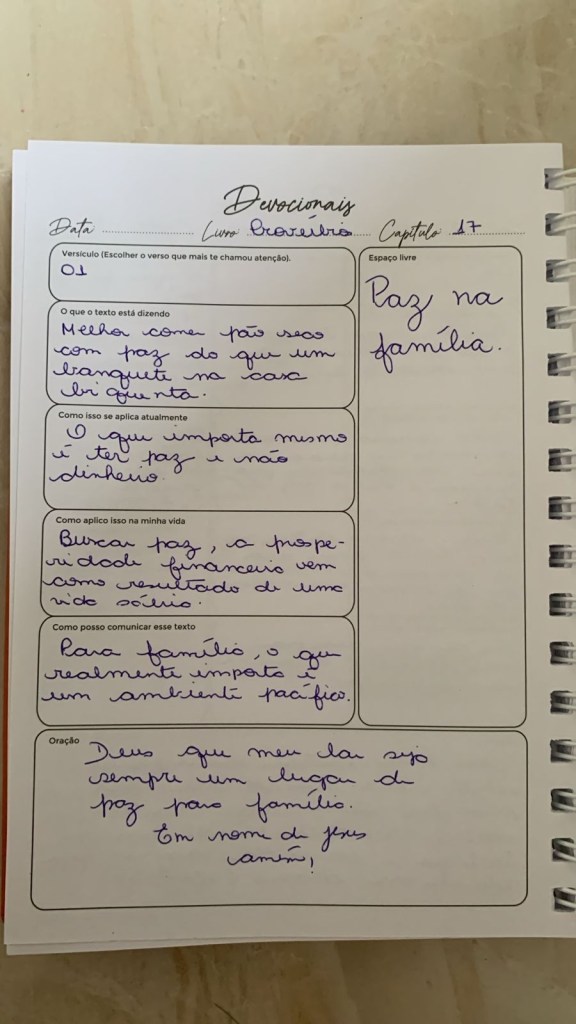 Devocionais
Data Livro Provérbio Capítulo 17
Versículo (Escolher o verso que mais te chamou atenção).
01
O que o texto está dizendo
Melhor comer pão seco
com paz do que um
banquete na casa
briguenta.
Como isso se aplica atualmente
O que importa mesmo
é ter paz e não
dinheiro.
Como aplico isso na minha vida
Buscar paz, a prospe-
ridade financeira vem
como resultado de uma
vida sábia.
Como posso comunicar esse texto
Para família, o que
realmente importa é
um ambiente pacífico.
Espaço livre
Paz na
família.
Oração
Deus que meu lar seja
sempre um lugar de
paz para família.
Em nome de Jesus
amém!